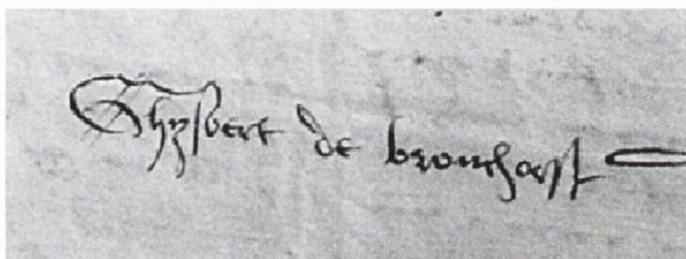 Ghysbert de bronchorst